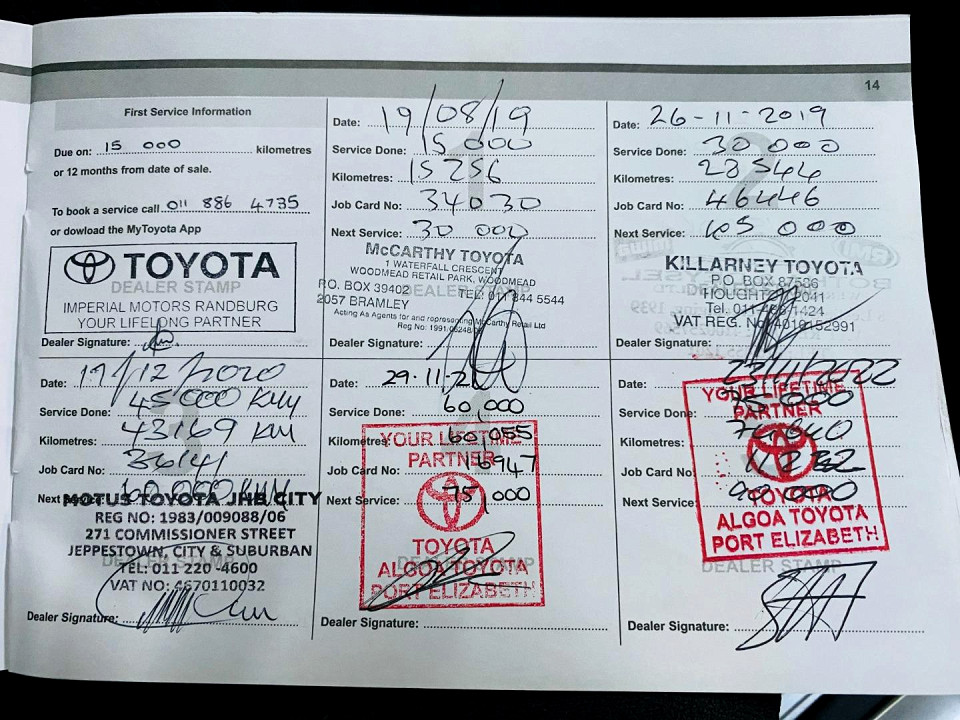 14
First Service Information
Due on: 15 000 kilometres
or 12 months from date of sale.
To book a service call 011 886 4735
or dowload the MyToyota App
TOYOTA
DEALER STAMP
IMPERIAL MOTORS RANDBURG
YOUR LIFELONG PARTNER
Dealer Signature:
Date: 19/08/19
Service Done: 15 000
Kilometres: 15 256
Job Card No: 34030
Next Service: 30 000
McCARTHY TOYOTA
1 WATERFALL CRESCENT
WOODMEAD RETAIL PARK, WOODMEAD
P.O. BOX 39402 TEL: 011 844 5544
2057 BRAMLEY
Acting As Agents for and representing McCarthy Retail Ltd
Reg No:
Dealer Signature:
Date: 26-11-2019
Service Done: 30 000
Kilometres: 28544
Job Card No: 46446
Next Service: 45 000
KILLARNEY TOYOTA
P.O. BOX 87586
HOUGHTON 2041
Tel. 011
VAT REG. No. 4010152991
Dealer Signature:
Date: 17/12/2020
Service Done: 45000 KM
Kilometres: 43169 KM
Job Card No: 36141
Next Service: 60 000 KM
MOTUS TOYOTA JHB CITY
REG NO: 1983/009088/06
271 COMMISSIONER STREET
JEPPESTOWN, CITY & SUBURBAN
DEALER STAMP
TEL: 011 220 -4600
VAT NO: 4670110032
Dealer Signature:
Date: 29.11.21
Service Done: 60,000
Kilometres: 60,055
Job Card No: 16947
Next Service: 75,000
YOUR LIFETIME
PARTNER
TOYOTA
DEALER STAMP
ALGOA TOYOTA
PORT ELIZABETH
Dealer Signature:
Date: 23/11/2022
Service Done: 75 000
Kilometres:
Job Card No:
Next Service: 90 000
YOUR LIFETIME
PARTNER
TOYOTA
ALGOA TOYOTA
PORT ELIZABETH
DEALER STAMP
Dealer Signature: